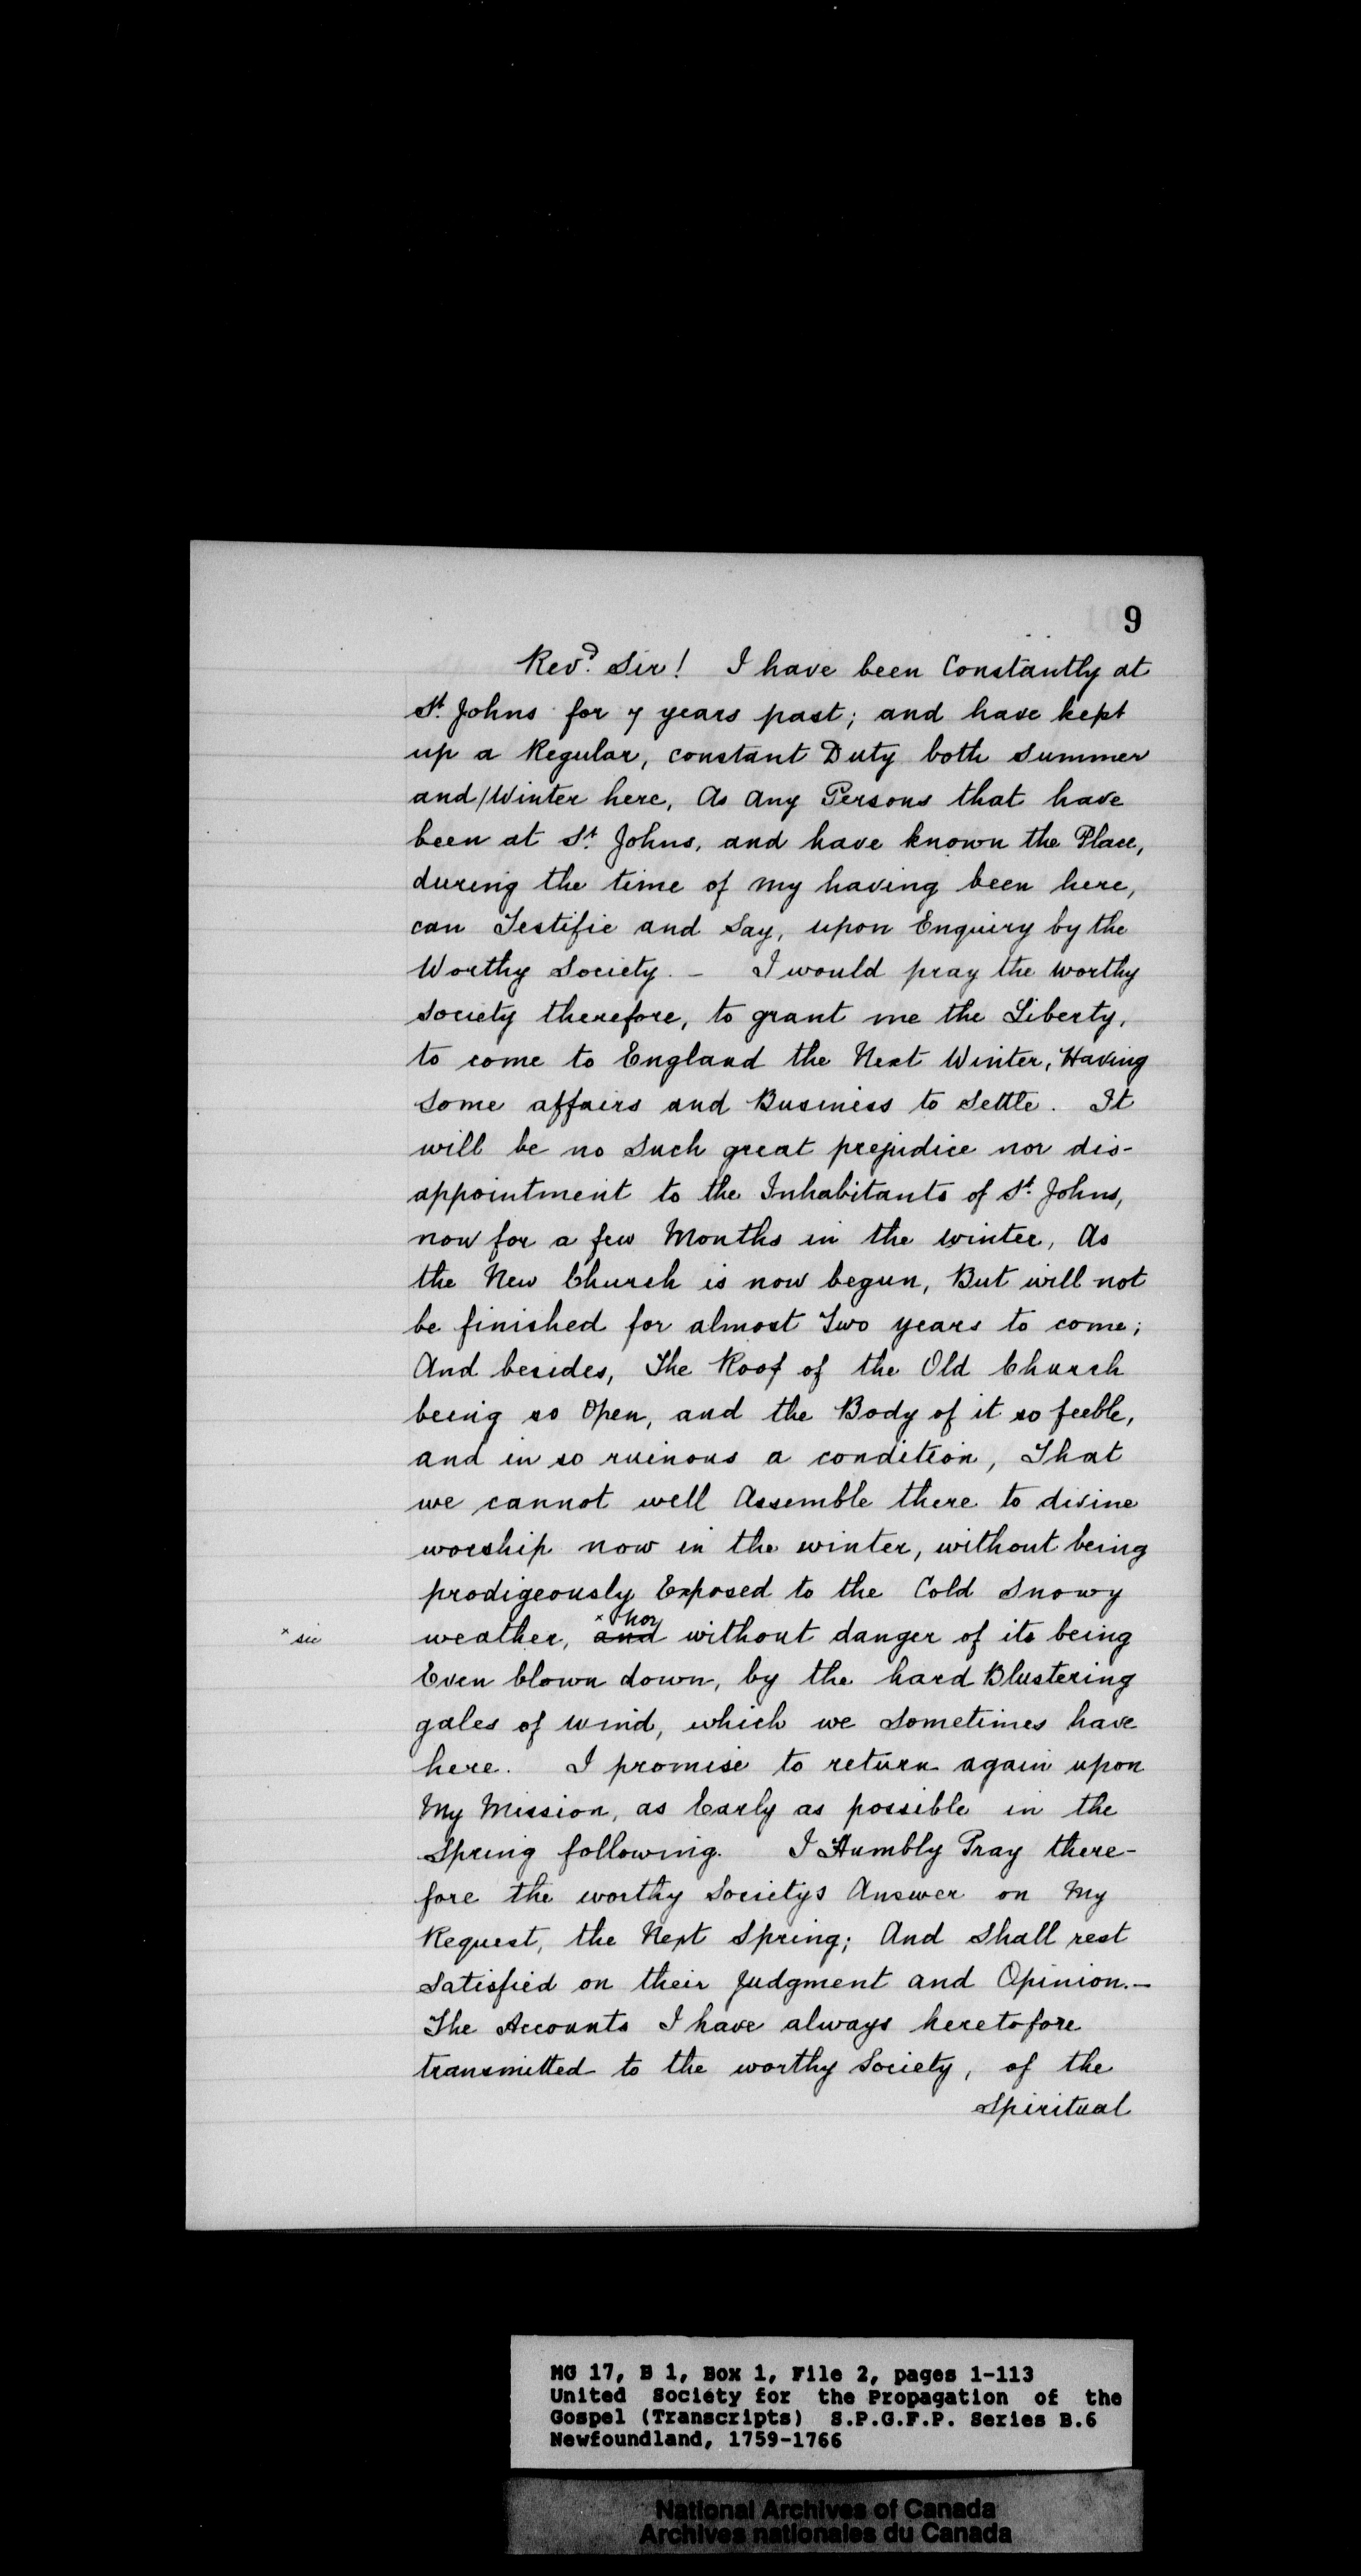 9
Revd. Sir! I have been Constantly at
St. Johns for 7 years past; and have kept
up a Regular, constant Duty both Summer
and/Winter here, As Any Persons that have
been at St. Johns, and have known the Place,
during the time of my having been here,
can Testifie and Say, upon Enquiry by the
Worthy Society. - I would pray the worthy
Society therefore, to grant me the Liberty,
to come to England the Next Winter, Having
Some affairs and Business to Settle. It
will be no Such great prejudice nor dis-
appointment to the Inhabitants of St. Johns,
now for a few Months in the winter, As
the New Church is now begun, But will not
be finished for almost Two years to come;
And besides, The Roof of the Old Church
being so Open, and the Body of it so feeble,
and in so ruinous a condition, That
we cannot well Assemble there to divine
worship now in the winter, without being
prodigeously Exposed to the Cold Snowy
x nor
x sic weather, and without danger of its being
Even blown down, by the hard Blustering
gales of wind, which we Sometimes have
here. I promise to return again upon
My Mission, as Early as possible in the
Spring following. I Humbly Pray there-
fore the worthy Societys Answer on My
Request, the Next Spring; And Shall rest
Satisfied on their Judgment and Opinion.-
The Accounts I have always heretofore
transmitted to the worthy Society, of the
Spiritual
MG 17, B 1, Box 1, File 2, pages 1-113
United Society for the Propagation of the
Gospel (Transcripts) S.P.G.F.P. Series B.6
Newfoundland, 1759-1766
National Archives of Canada
Archives nationales du Canada